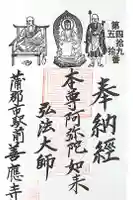 第四拾九番
第五拾番
奉納経
本尊阿弥陀如来
弘法大師
蒲郡市駅前善應寺